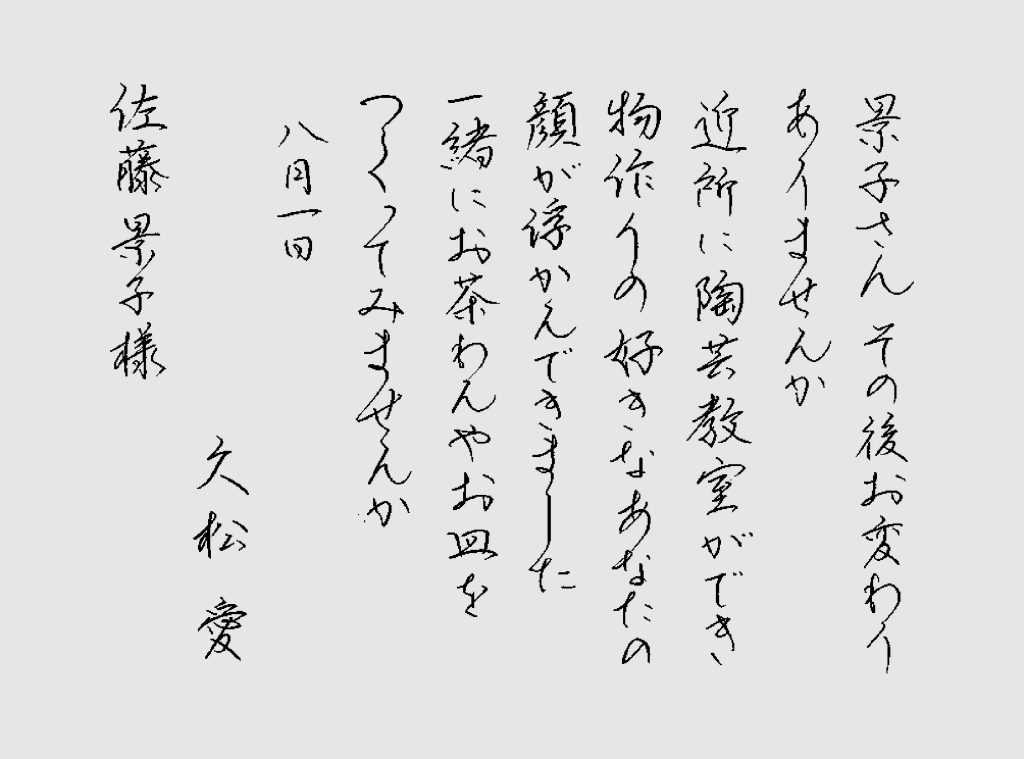 景子さん その後お変わり
ありませんか
近所に陶芸教室ができ、
物作りの好きなあなたの
顔が浮かんできました
一緒にお茶わんやお皿を
つくってみませんか
八月一日
久松愛
佐藤景子様